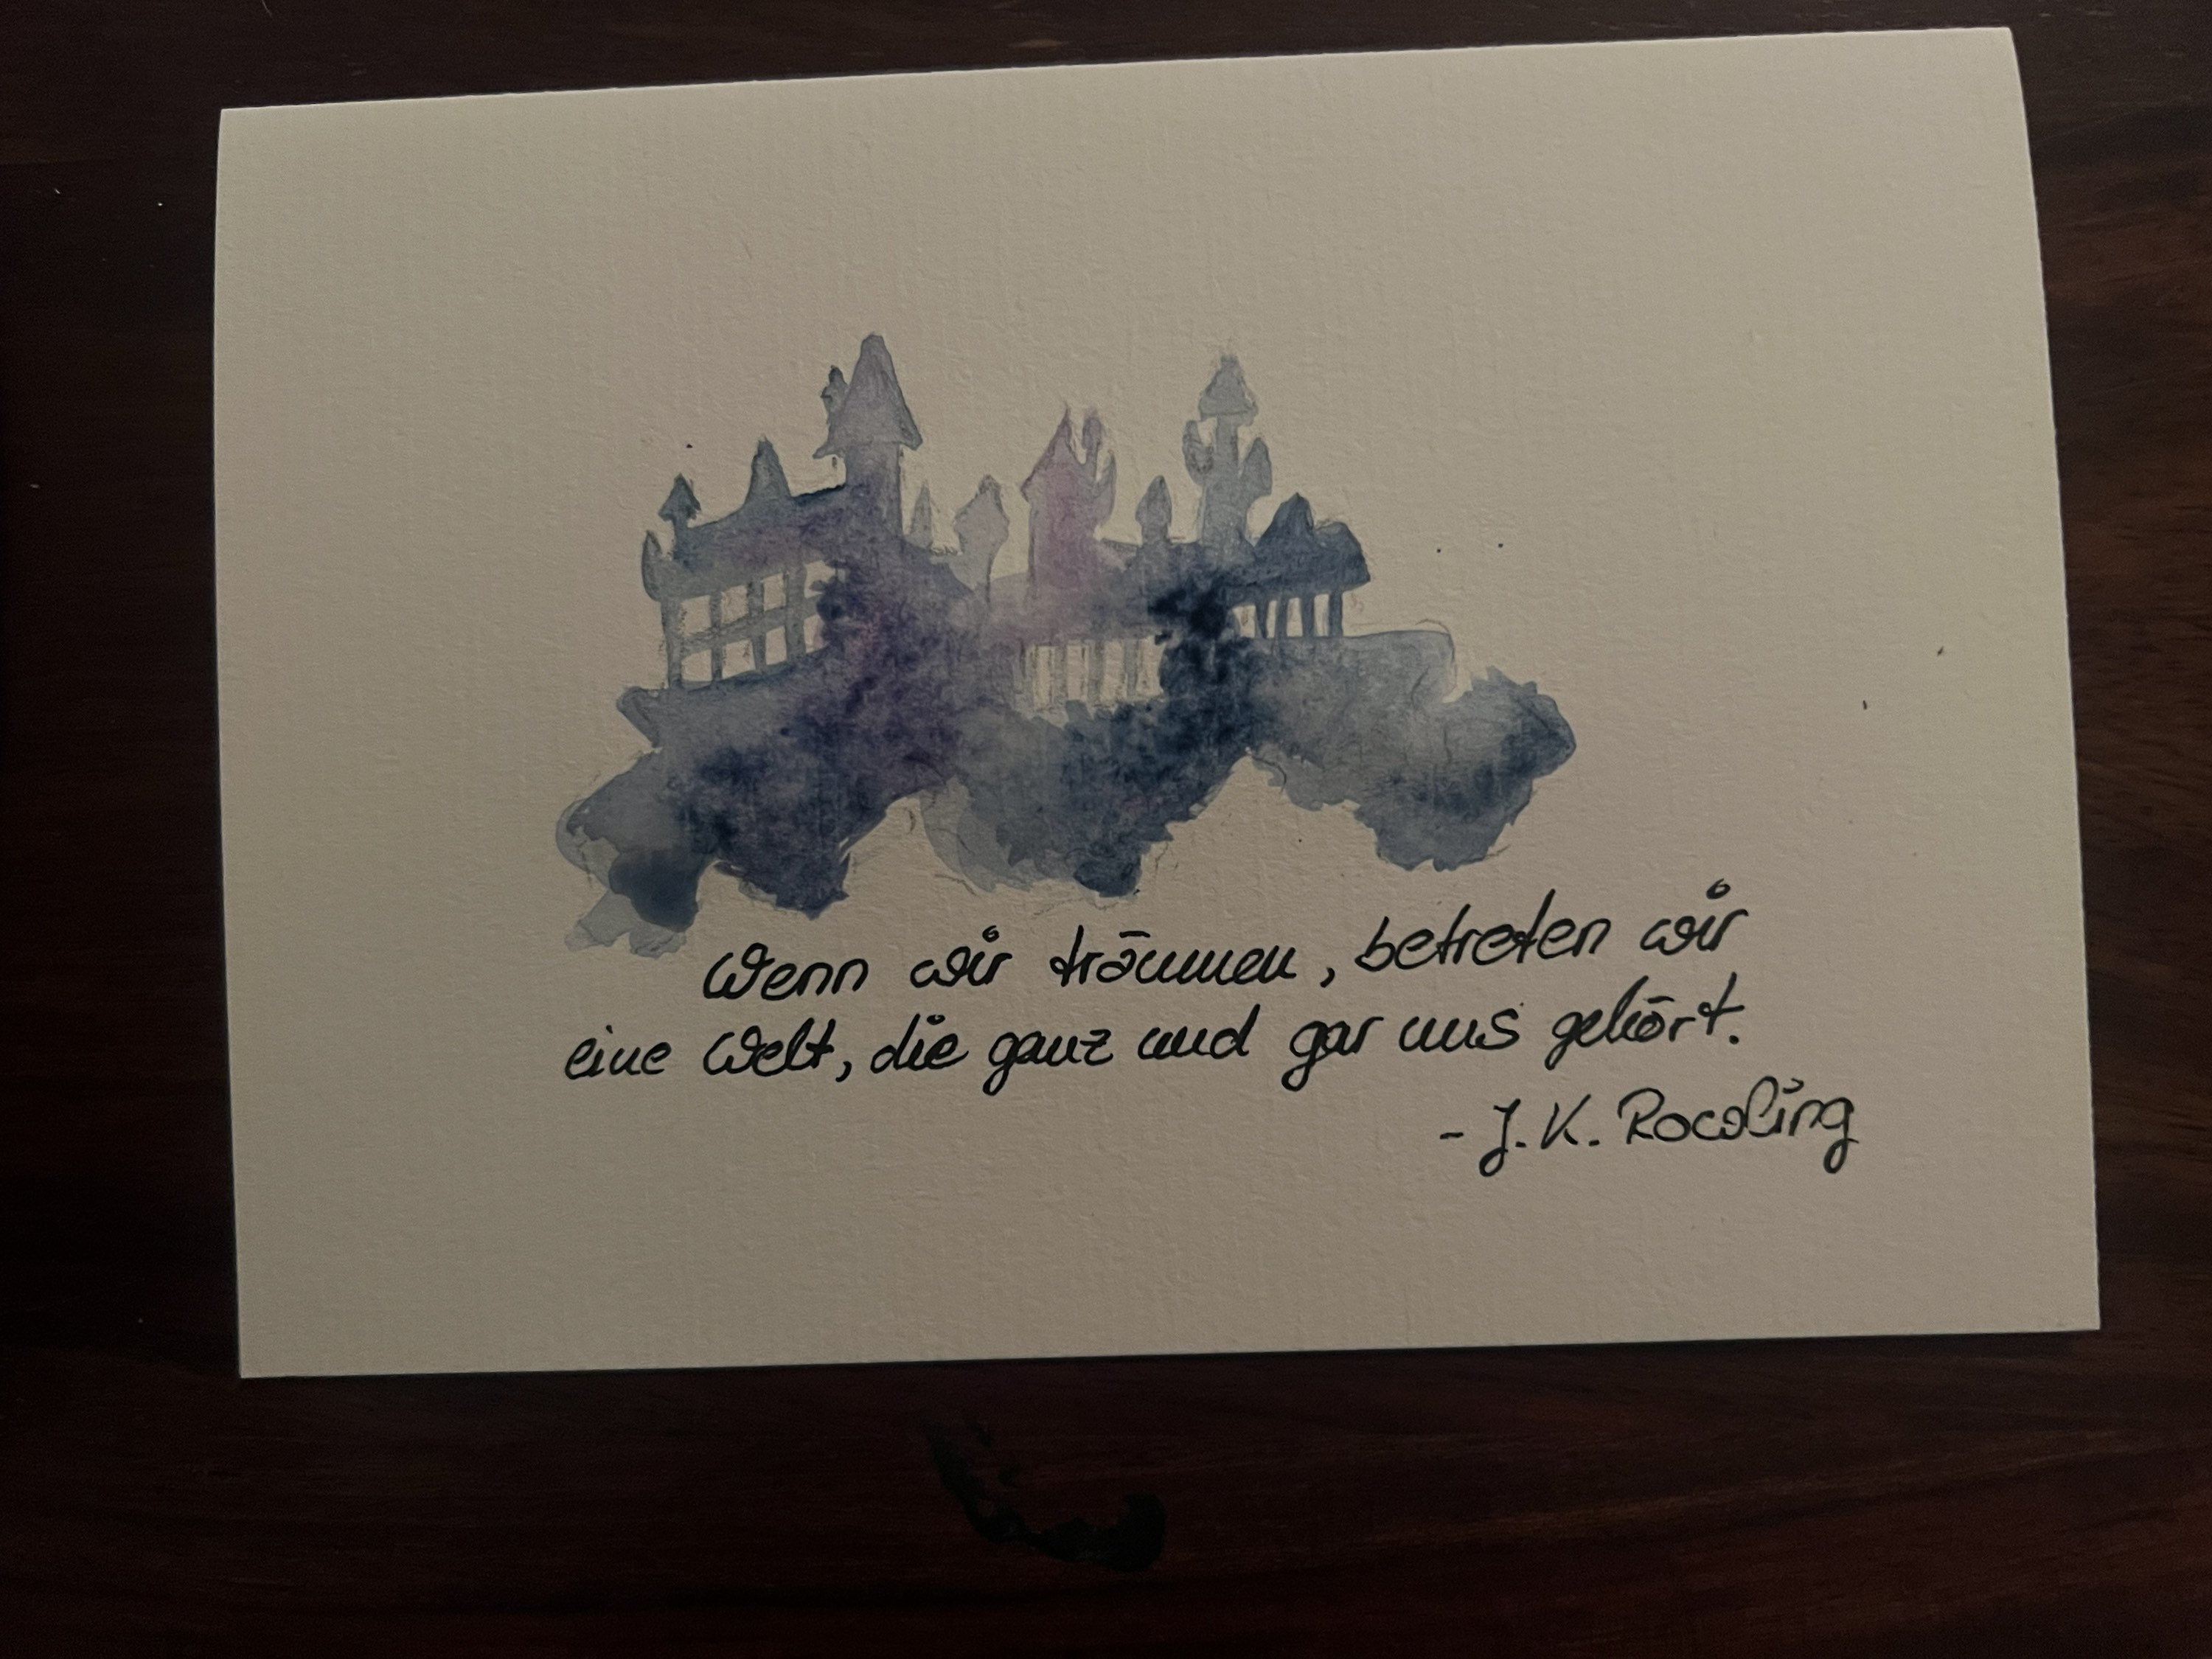 Wenn wir träumen, betreten wir
eine Welt, die ganz und gar uns gehört.
- J. K. Rowling